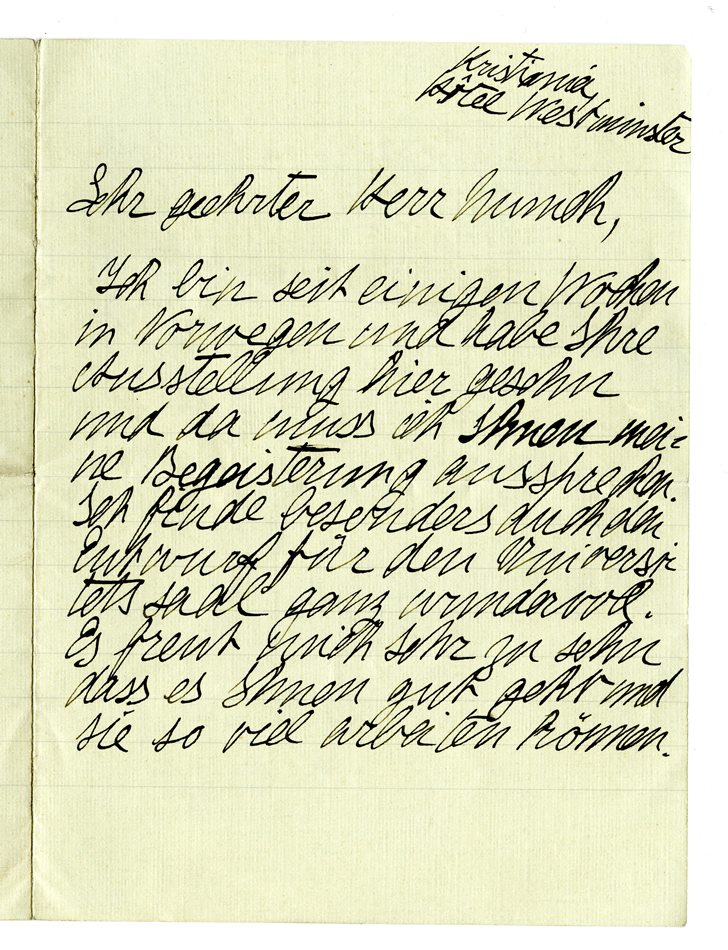 Kristiania
Hôtel Westminster
Sehr geehrter Herr Munch,
Ich bin seit einigen Wochen
in Norwegen und habe Ihre
Ausstellung hier gesehn
und da muss ich Ihnen mei-
ne Begeisterung aussprechen.
Ich finde besonders auch den
Entwurf für den Universi
tets saal ganz wundervoll.
Es freut mich sehr zu sehn
dass es Ihnen gut geht und
sie so viel arbeiten können.